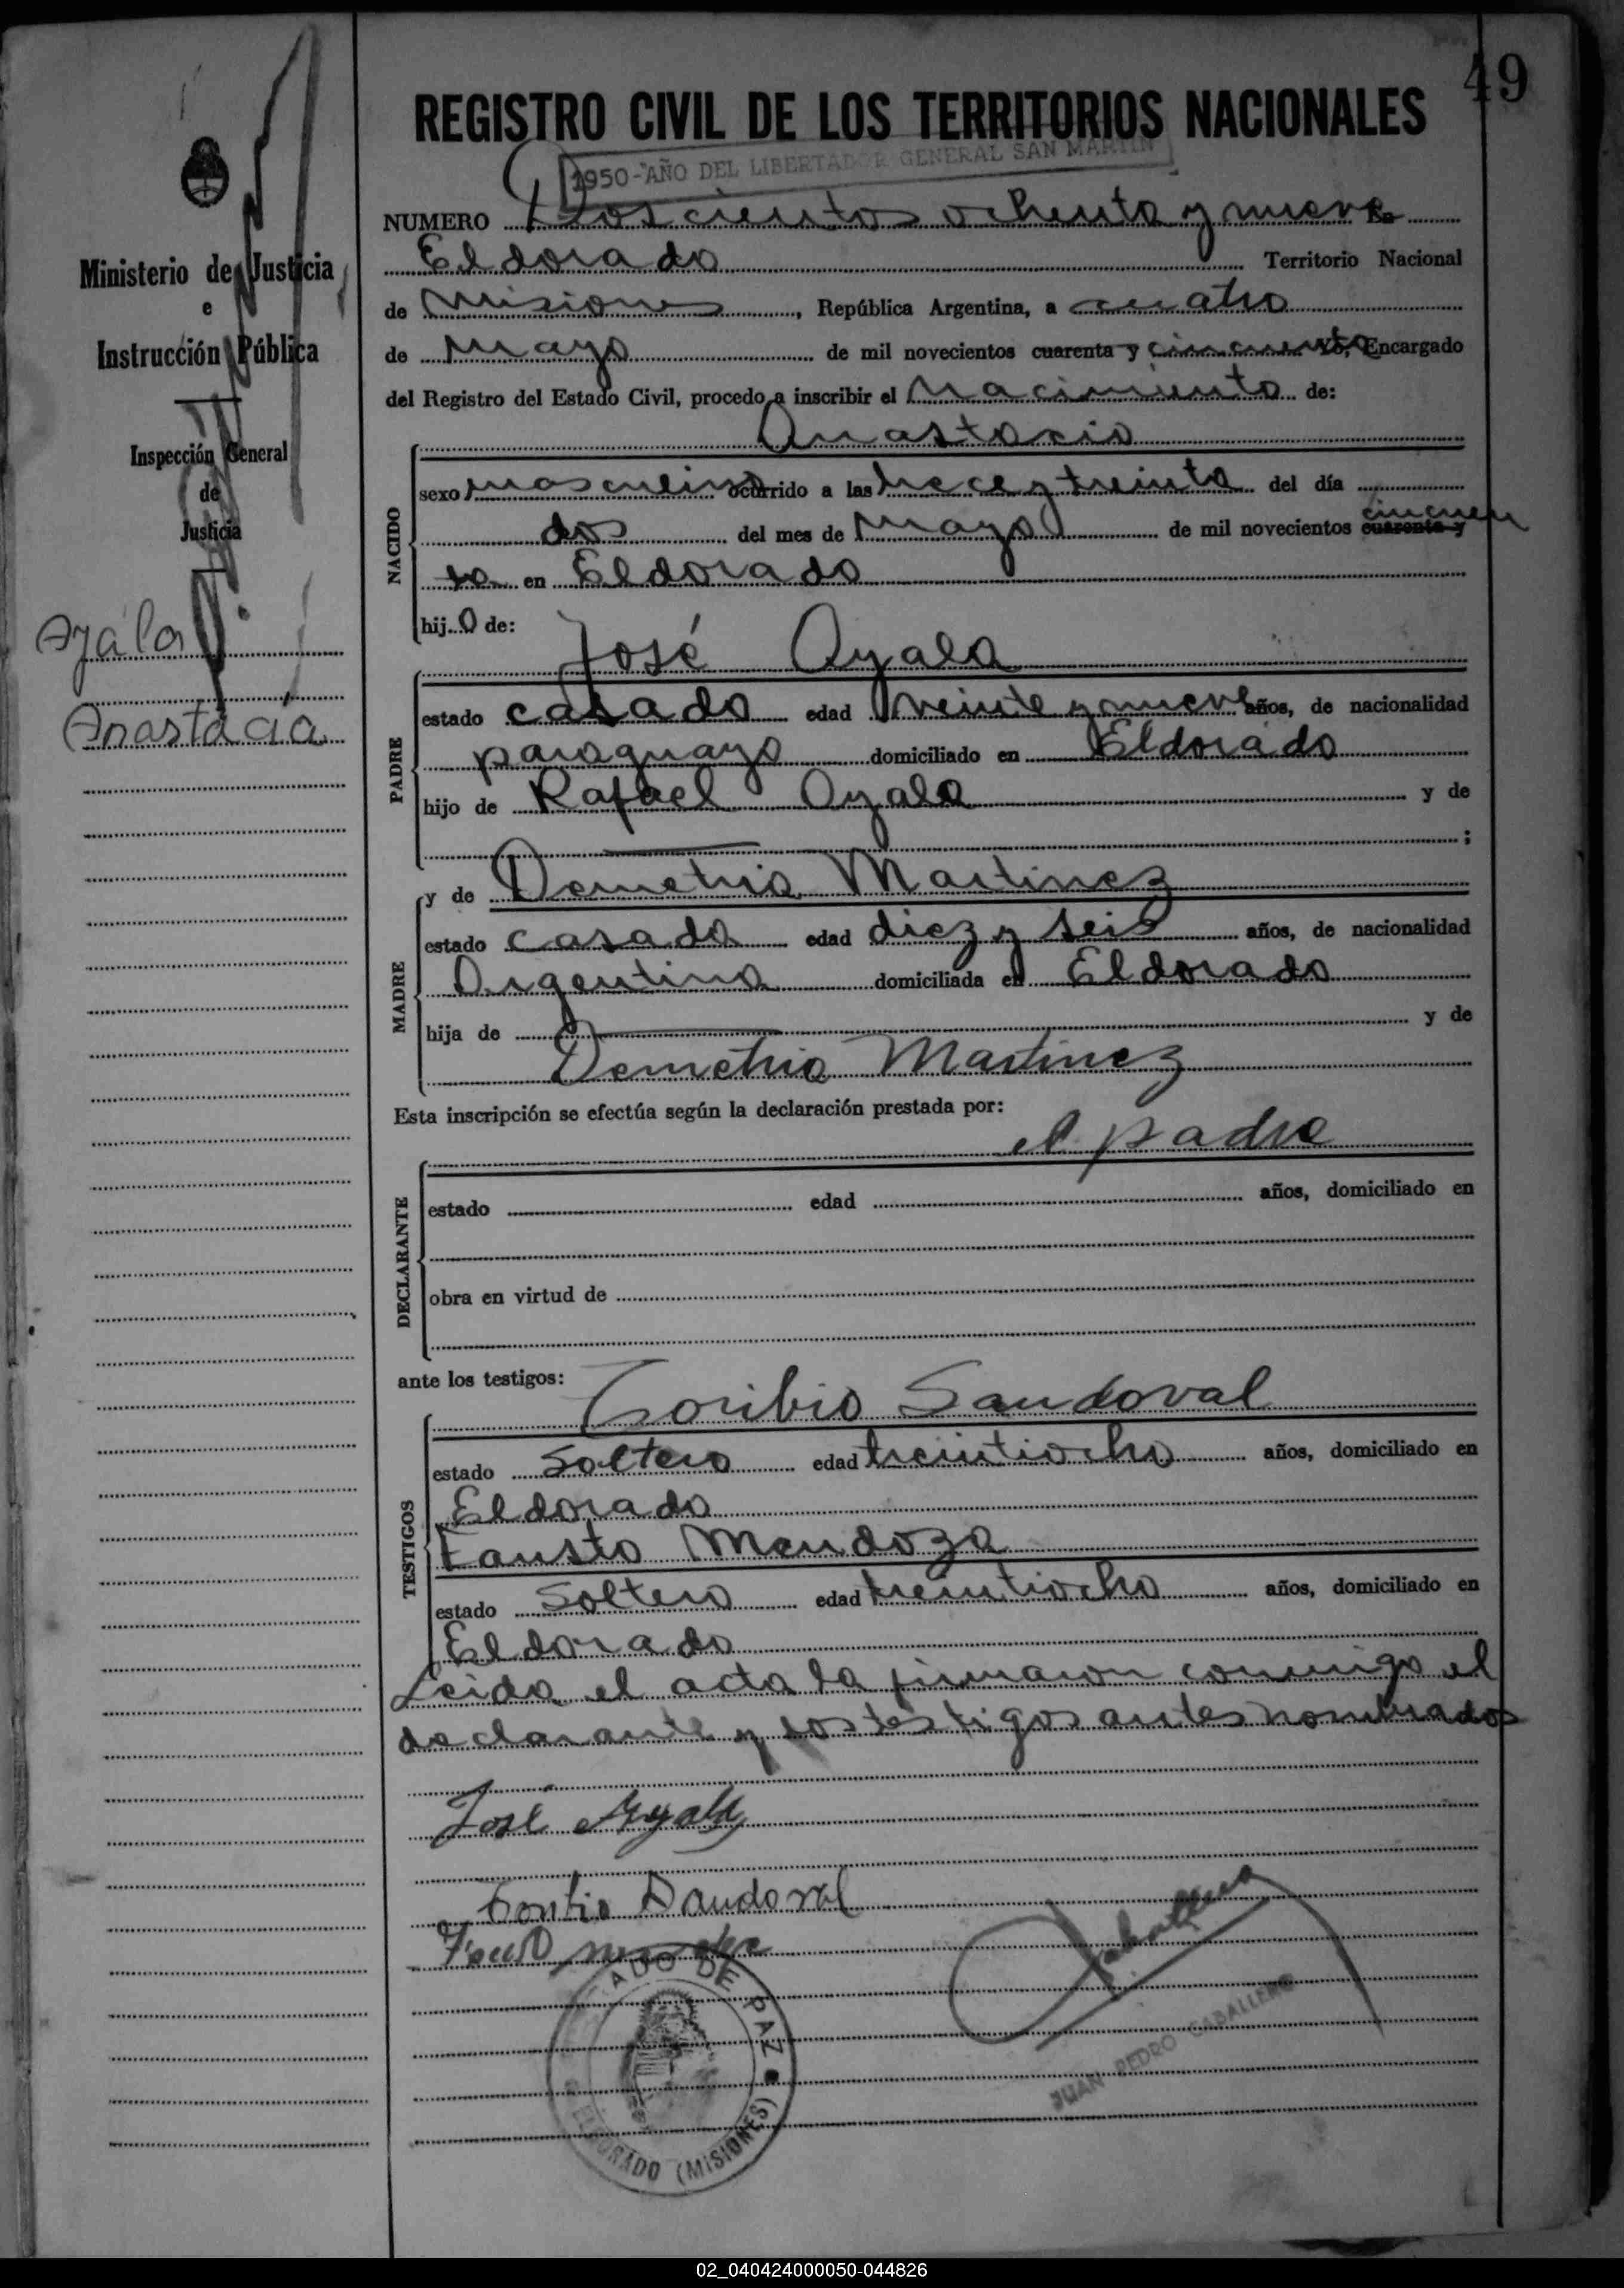 49
REGISTRO CIVIL DE LOS TERRITORIOS NACIONALES
1950-AÑO DEL LIBERTADOR GENERAL SAN MARTIN
NUMERO Doscientos ochenta y nueve En
Eldorado Territorio Nacional
de Misiones, República Argentina, a cuatro
de Mayo de mil novecientos cuarenta y cincuenta Yo, Encargado
del Registro del Estado Civil, procedo a inscribir el Nacimiento de:
Anastacio
NACIDO
sexo masculino ocurrido a las trece y treinta del día
dos del mes de Mayo de mil novecientos cuarenta y cincuen
ta en Eldorado
hijo de:
José Ayala
PADRE
estado casado edad veinte y nueve años, de nacionalidad
paraguayo domiciliado en Eldorado
hijo de Rafael Ayala y de
;
y de Demetria Martinez
MADRE
estado casada edad diez y seis años, de nacionalidad
Argentina domiciliada en Eldorado
hija de y de
Demetria Martinez
Esta inscripción se efectúa según la declaración prestada por:
el padre
DECLARANTE
estado edad años, domiciliado en
obra en virtud de
ante los testigos:
Toribio Sandoval
TESTIGOS
estado soltero edad treintiocho años, domiciliado en
Eldorado
Fausto Mendoza
estado soltero edad treintiocho años, domiciliado en
Eldorado
Leida el acta la firmaron conmigo el
declarante y los testigos antes nombrados
José Ayala
Toribio Sandoval
JUZGADO DE PAZ
ELDORADO (MISIONES)
JUAN PEDRO CABALLERO
Ministerio de Justicia
e
Instrucción Pública
Inspección General
de
Justicia
Ayala
Anastacia
02_040424000050-044826